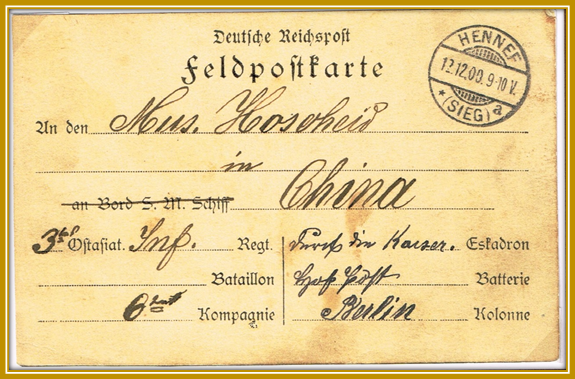 Deutsche Reichspost
Feldpostkarte
HENNEF
12.12.00. 9-10 V.
* (SIEG) a
An den Mus. Hoscheid
in
China
an Bord S. M. Schiff
3te Ostasiat. Inf. Regt.
Bataillon
6te Kompagnie
durch die Kaiser. Eskadron
Hof Post Batterie
Berlin Kolonne